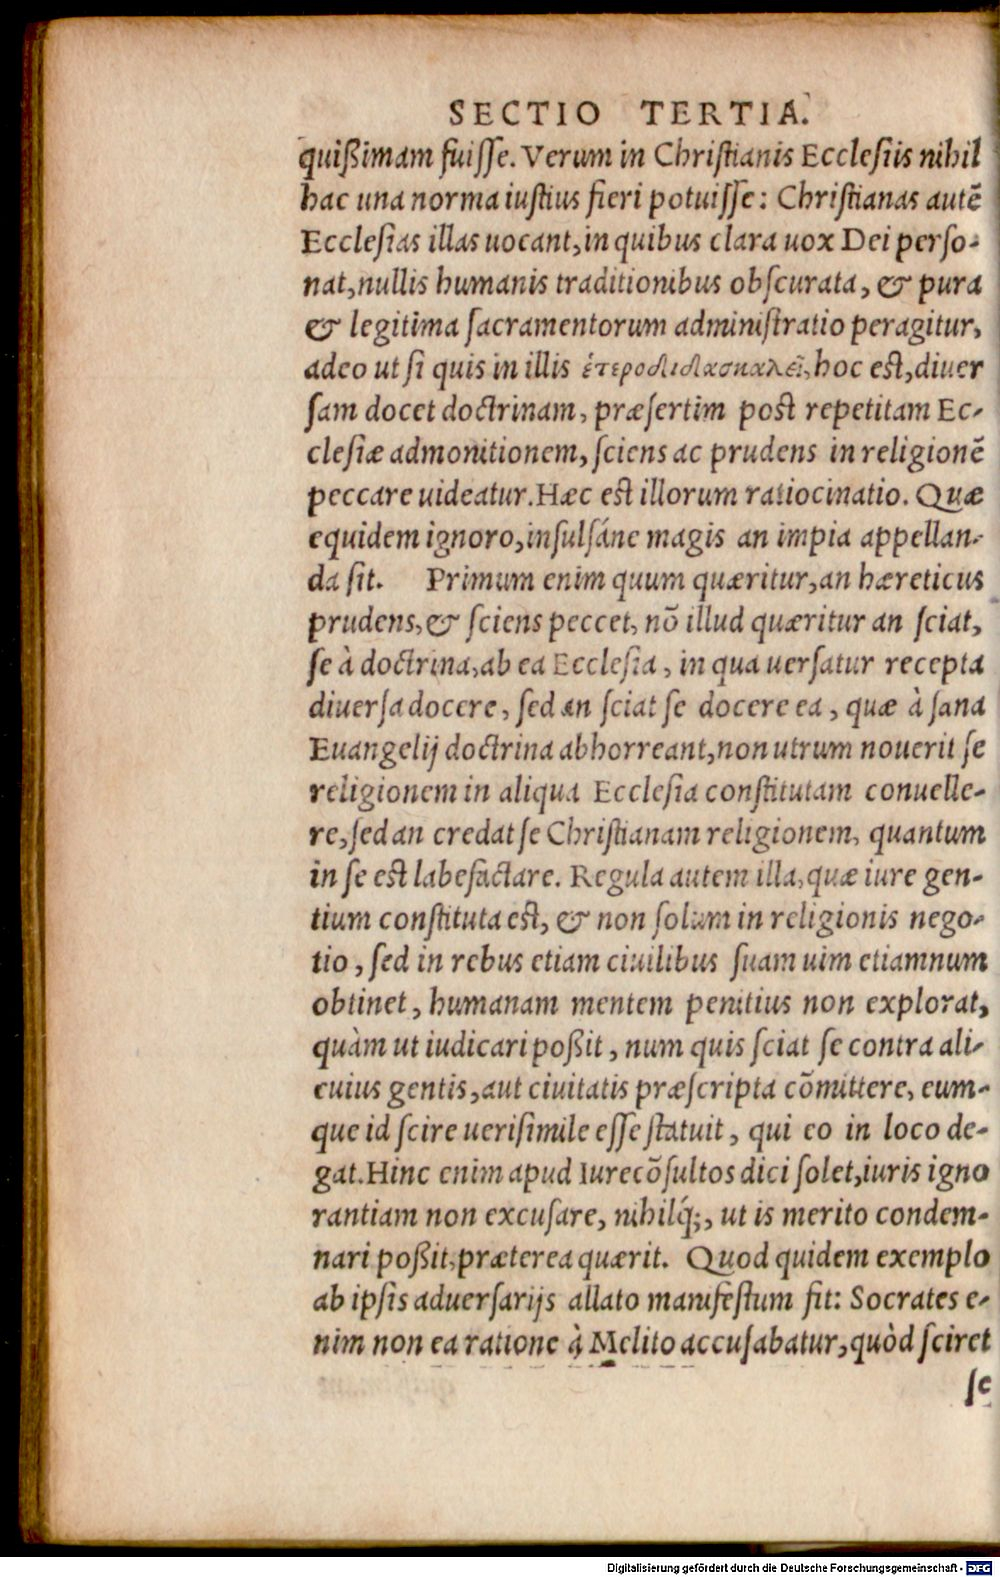 SECTIO TERTIA.
quißimam fuisſe. Verum in Chriſtianis Eccleſiis nihil
hac una norma iuſtius fieri potuisſe: Chriſtianas autē
Eccleſias illas uocant, in quibus clara uox Dei perſo-
nat, nullis humanis traditionibus obſcurata, & pura
& legitima ſacramentorum adminiſtratio peragitur,
adeo ut ſi quis in illis ἑτεροδιδασκαλεῖ, hoc eſt, diuer
ſam docet doctrinam, præſertim poſt repetitam Ec-
cleſiæ admonitionem, ſciens ac prudens in religionē
peccare uideatur. Hæc eſt illorum ratiocinatio. Quæ
equidem ignoro, inſulſáne magis an impia appellan-
da ſit. Primum enim quum quæritur, an hæreticus
prudens, & ſciens peccet, nō illud quæritur an ſciat,
ſe à doctrina, ab ea Eccleſia, in qua uerſatur recepta
diuerſa docere, ſed an ſciat ſe docere ea, quæ à ſana
Euangelij doctrina abhorreant, non utrum nouerit ſe
religionem in aliqua Eccleſia conſtitutam conuelle-
re, ſed an credat ſe Chriſtianam religionem, quantum
in ſe eſt labefactare. Regula autem illa, quæ iure gen-
tium conſtituta eſt, & non ſolum in religionis nego-
tio, ſed in rebus etiam ciuilibus ſuam uim etiamnum
obtinet, humanam mentem penitius non explorat,
quàm ut iudicari poßit, num quis ſciat ſe contra ali-
cuius gentis, aut ciuitatis præſcripta cōmittere, eum-
que id ſcire ueriſimile esſe ſtatuit, qui eo in loco de-
gat. Hinc enim apud Iurecōſultos dici ſolet, iuris igno
rantiam non excuſare, nihilq́;, ut is merito condem-
nari poßit, præterea quærit. Quod quidem exemplo
ab ipſis aduerſarijs allato manifeſtum fit: Socrates e-
nim non ea ratione à Melito accuſabatur, quòd ſciret
ſe
Digitalisierung gefördert durch die Deutsche Forschungsgemeinschaft - DFG